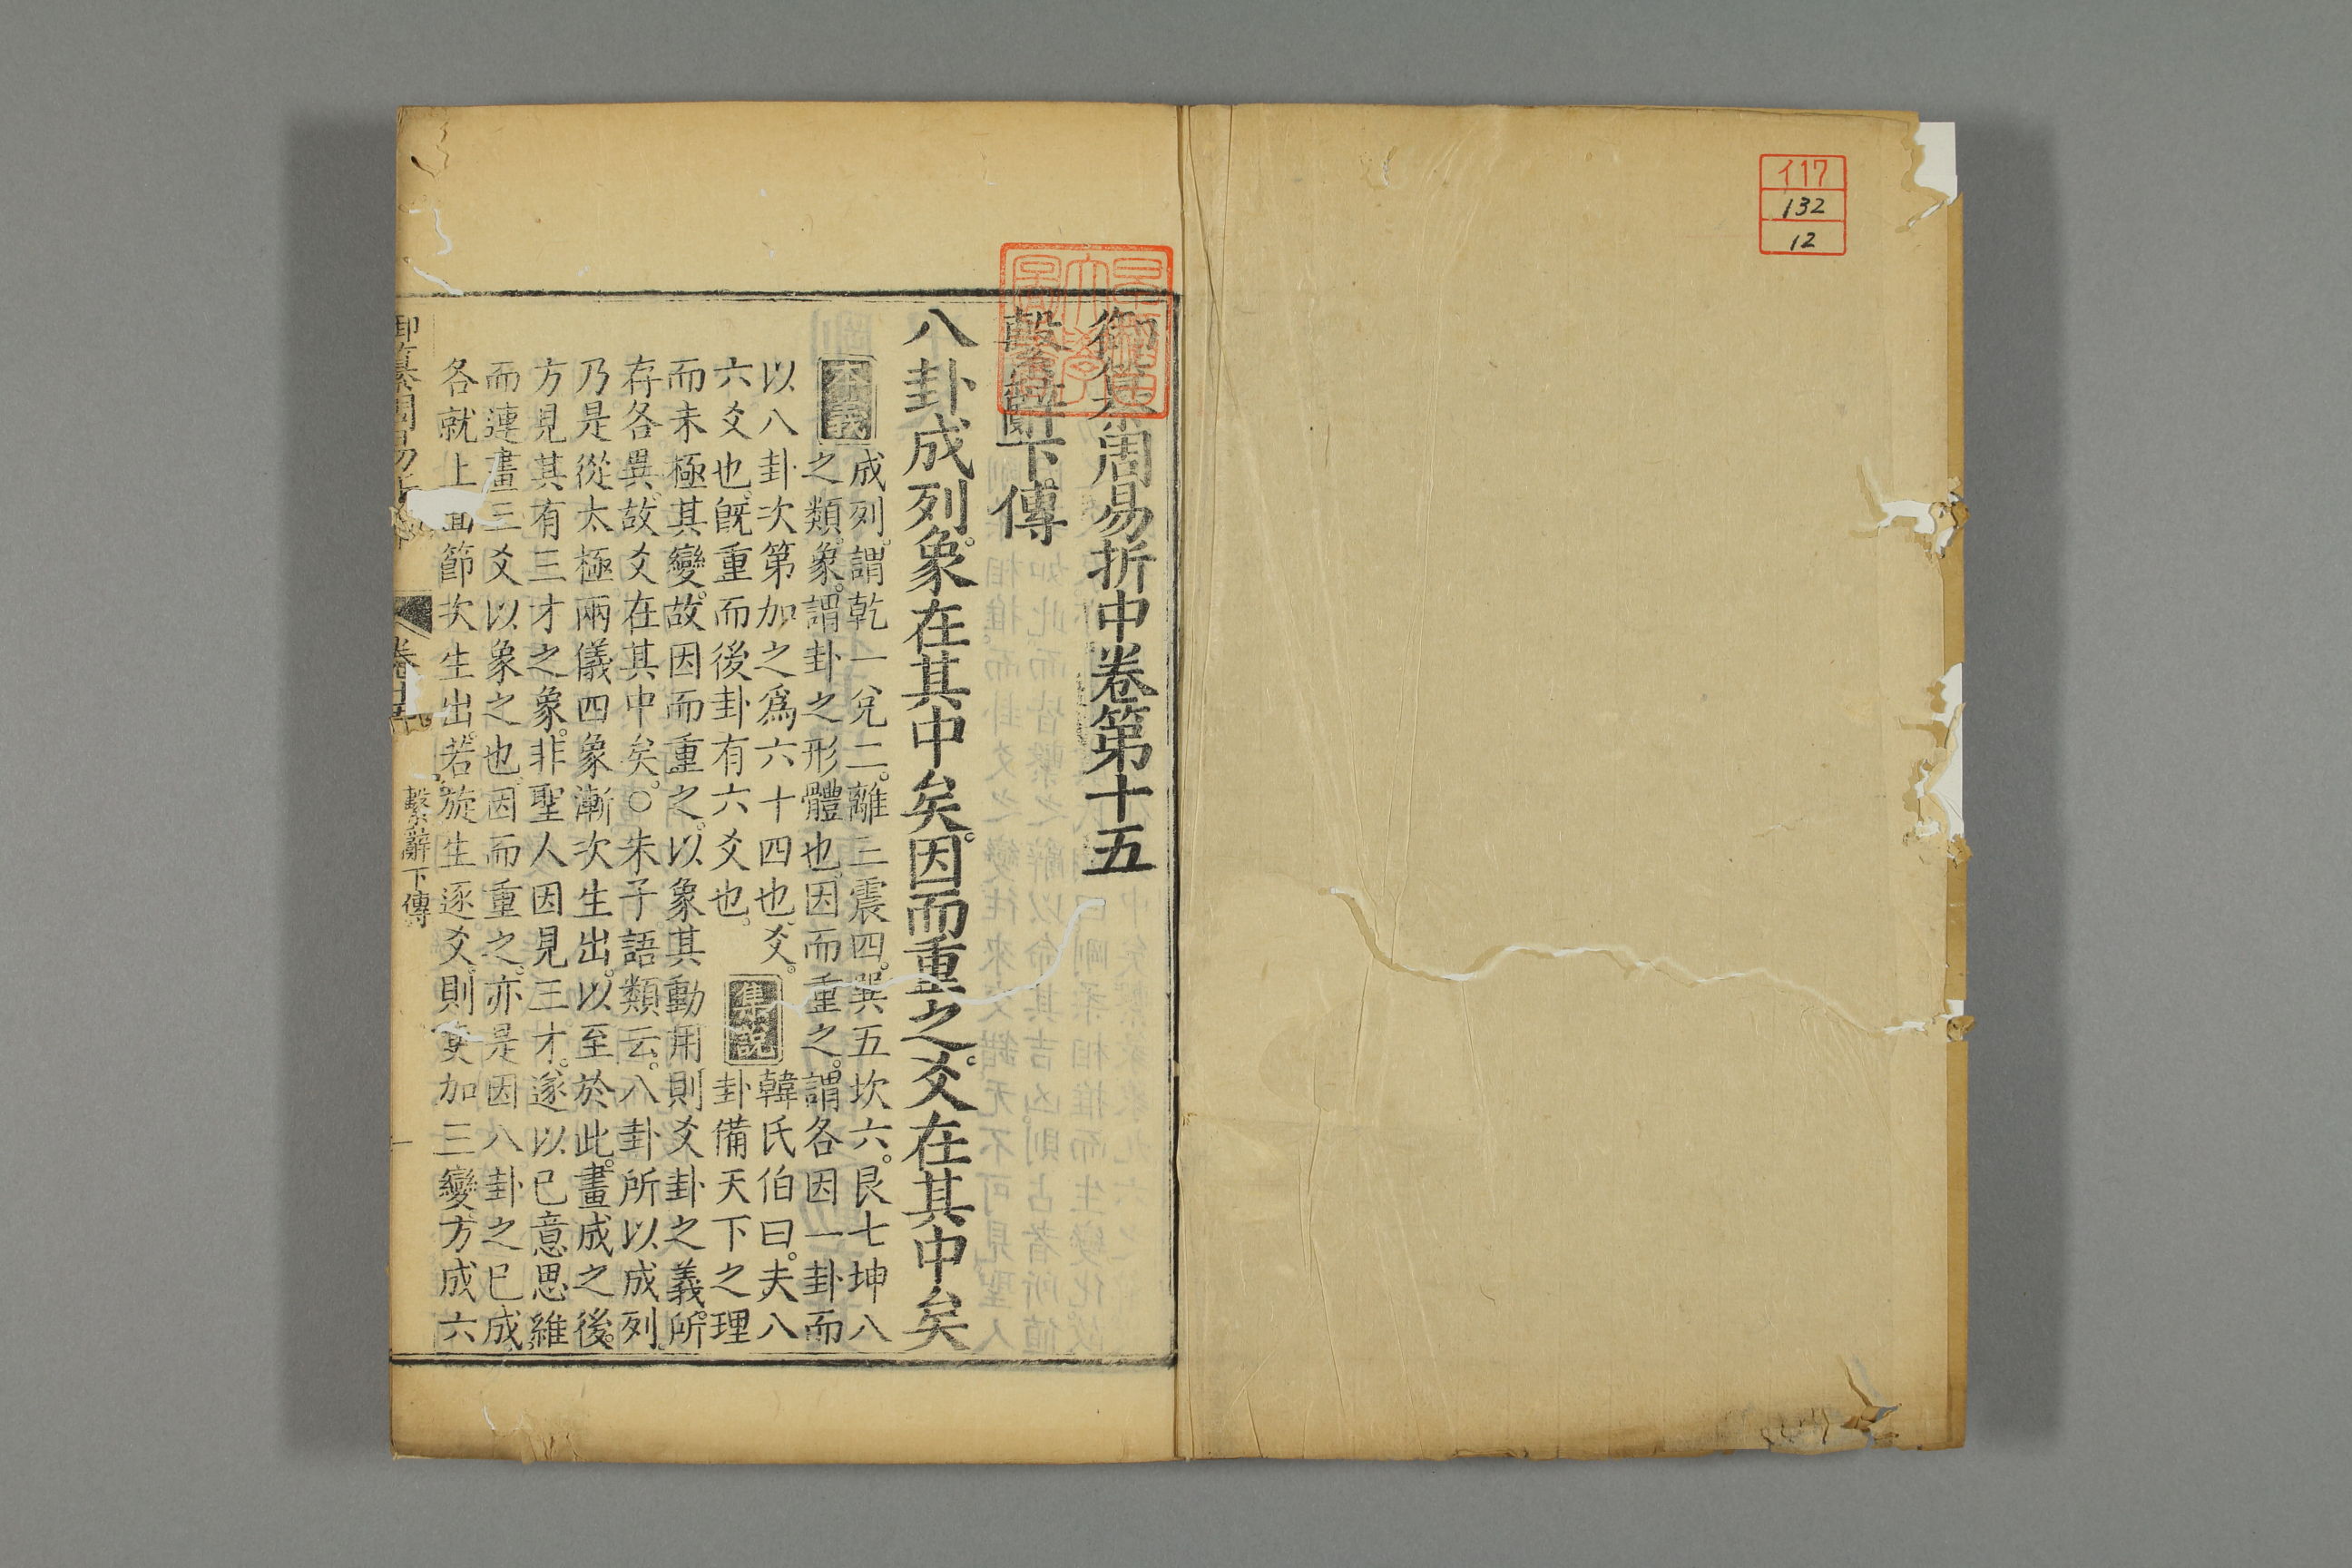 イ17
132
12
御纂周易折中卷第十五
繫辭下傳
八卦成列。象在其中矣。因而重之。爻在其中矣
本義
成列。謂乾一兌二。離三震四。巽五坎六。艮七坤八
之類。象。謂卦之形體也。因而重之。謂各因一卦而
以八卦次第加之爲六十四也。爻。
六爻也。旣重而後卦有六爻也。
集說
韓氏伯曰。夫八
卦備天下之理
而未極其變。故因而重之。以象其動用。則爻卦之義。所
存各異。故爻在其中矣。○朱子語類云。八卦所以成列。
乃是從太極兩儀四象漸次生出。以至於此。畫成之後。
方見其有三才之象。非聖人因見三才。遂以已意思維
而連畫三爻以象之也。因而重之。亦是因八卦之已成。
各就上面節次生出。若旋生逐爻。則更加三變。方成六
御纂周易折中
卷十五
繫辭下傳
一